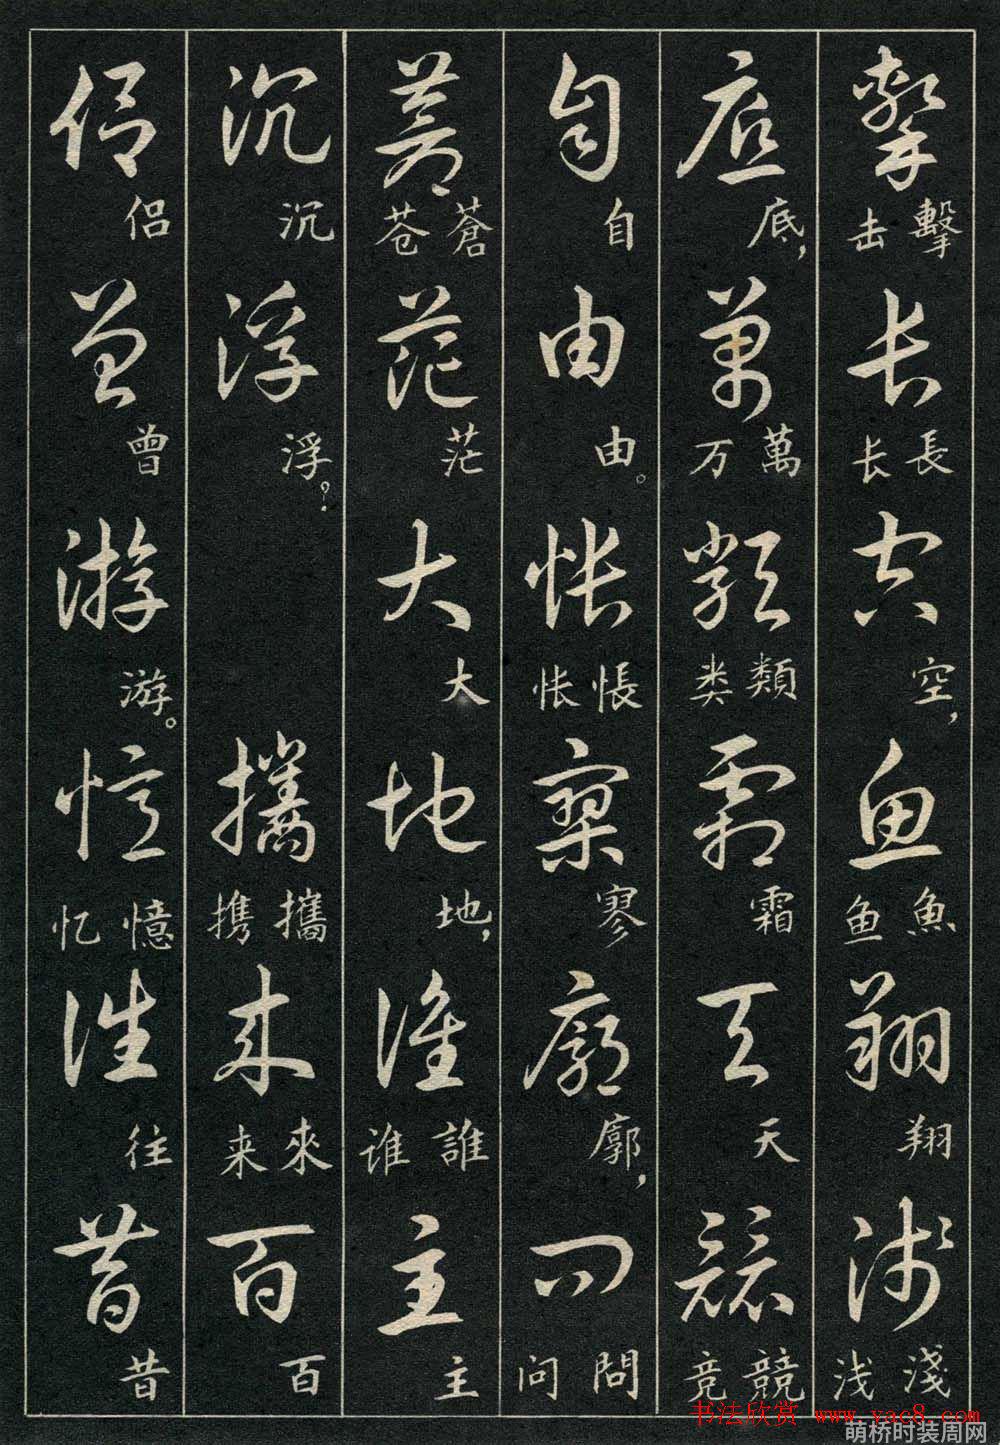 擊 擊击 長 長长 空 空， 魚 魚鱼 翔 翔 淺 淺浅
底 底， 萬 萬万 類 類类 霜 霜 天 天 競 競竞
自 自 由 由。 悵 悵怅 寥 寥 廓 廓， 問 問问
蒼 蒼苍 茫 茫 大 大 地 地， 誰 誰谁 主 主
沉 沉 浮 浮？ 攜 攜携 來 來来 百 百
侶 侣 曾 曾 游 游。 憶 憶忆 往 往 昔 昔
书法欣赏 www.yac8.com
萌桥时装周网